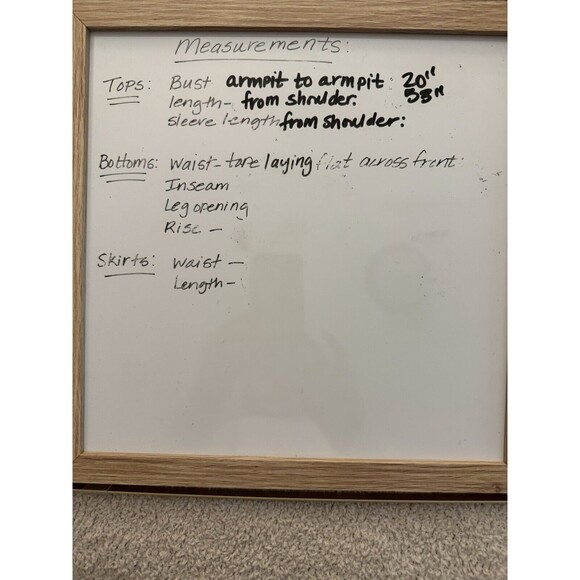 Measurements:
Tops: Bust armpit to armpit: 20"
length- from shoulder. 53"
sleeve length from shoulder:
Bottoms: Waist- tape laying flat across front.
Inseam
Leg opening
Rise -
Skirts: Waist -
Length -